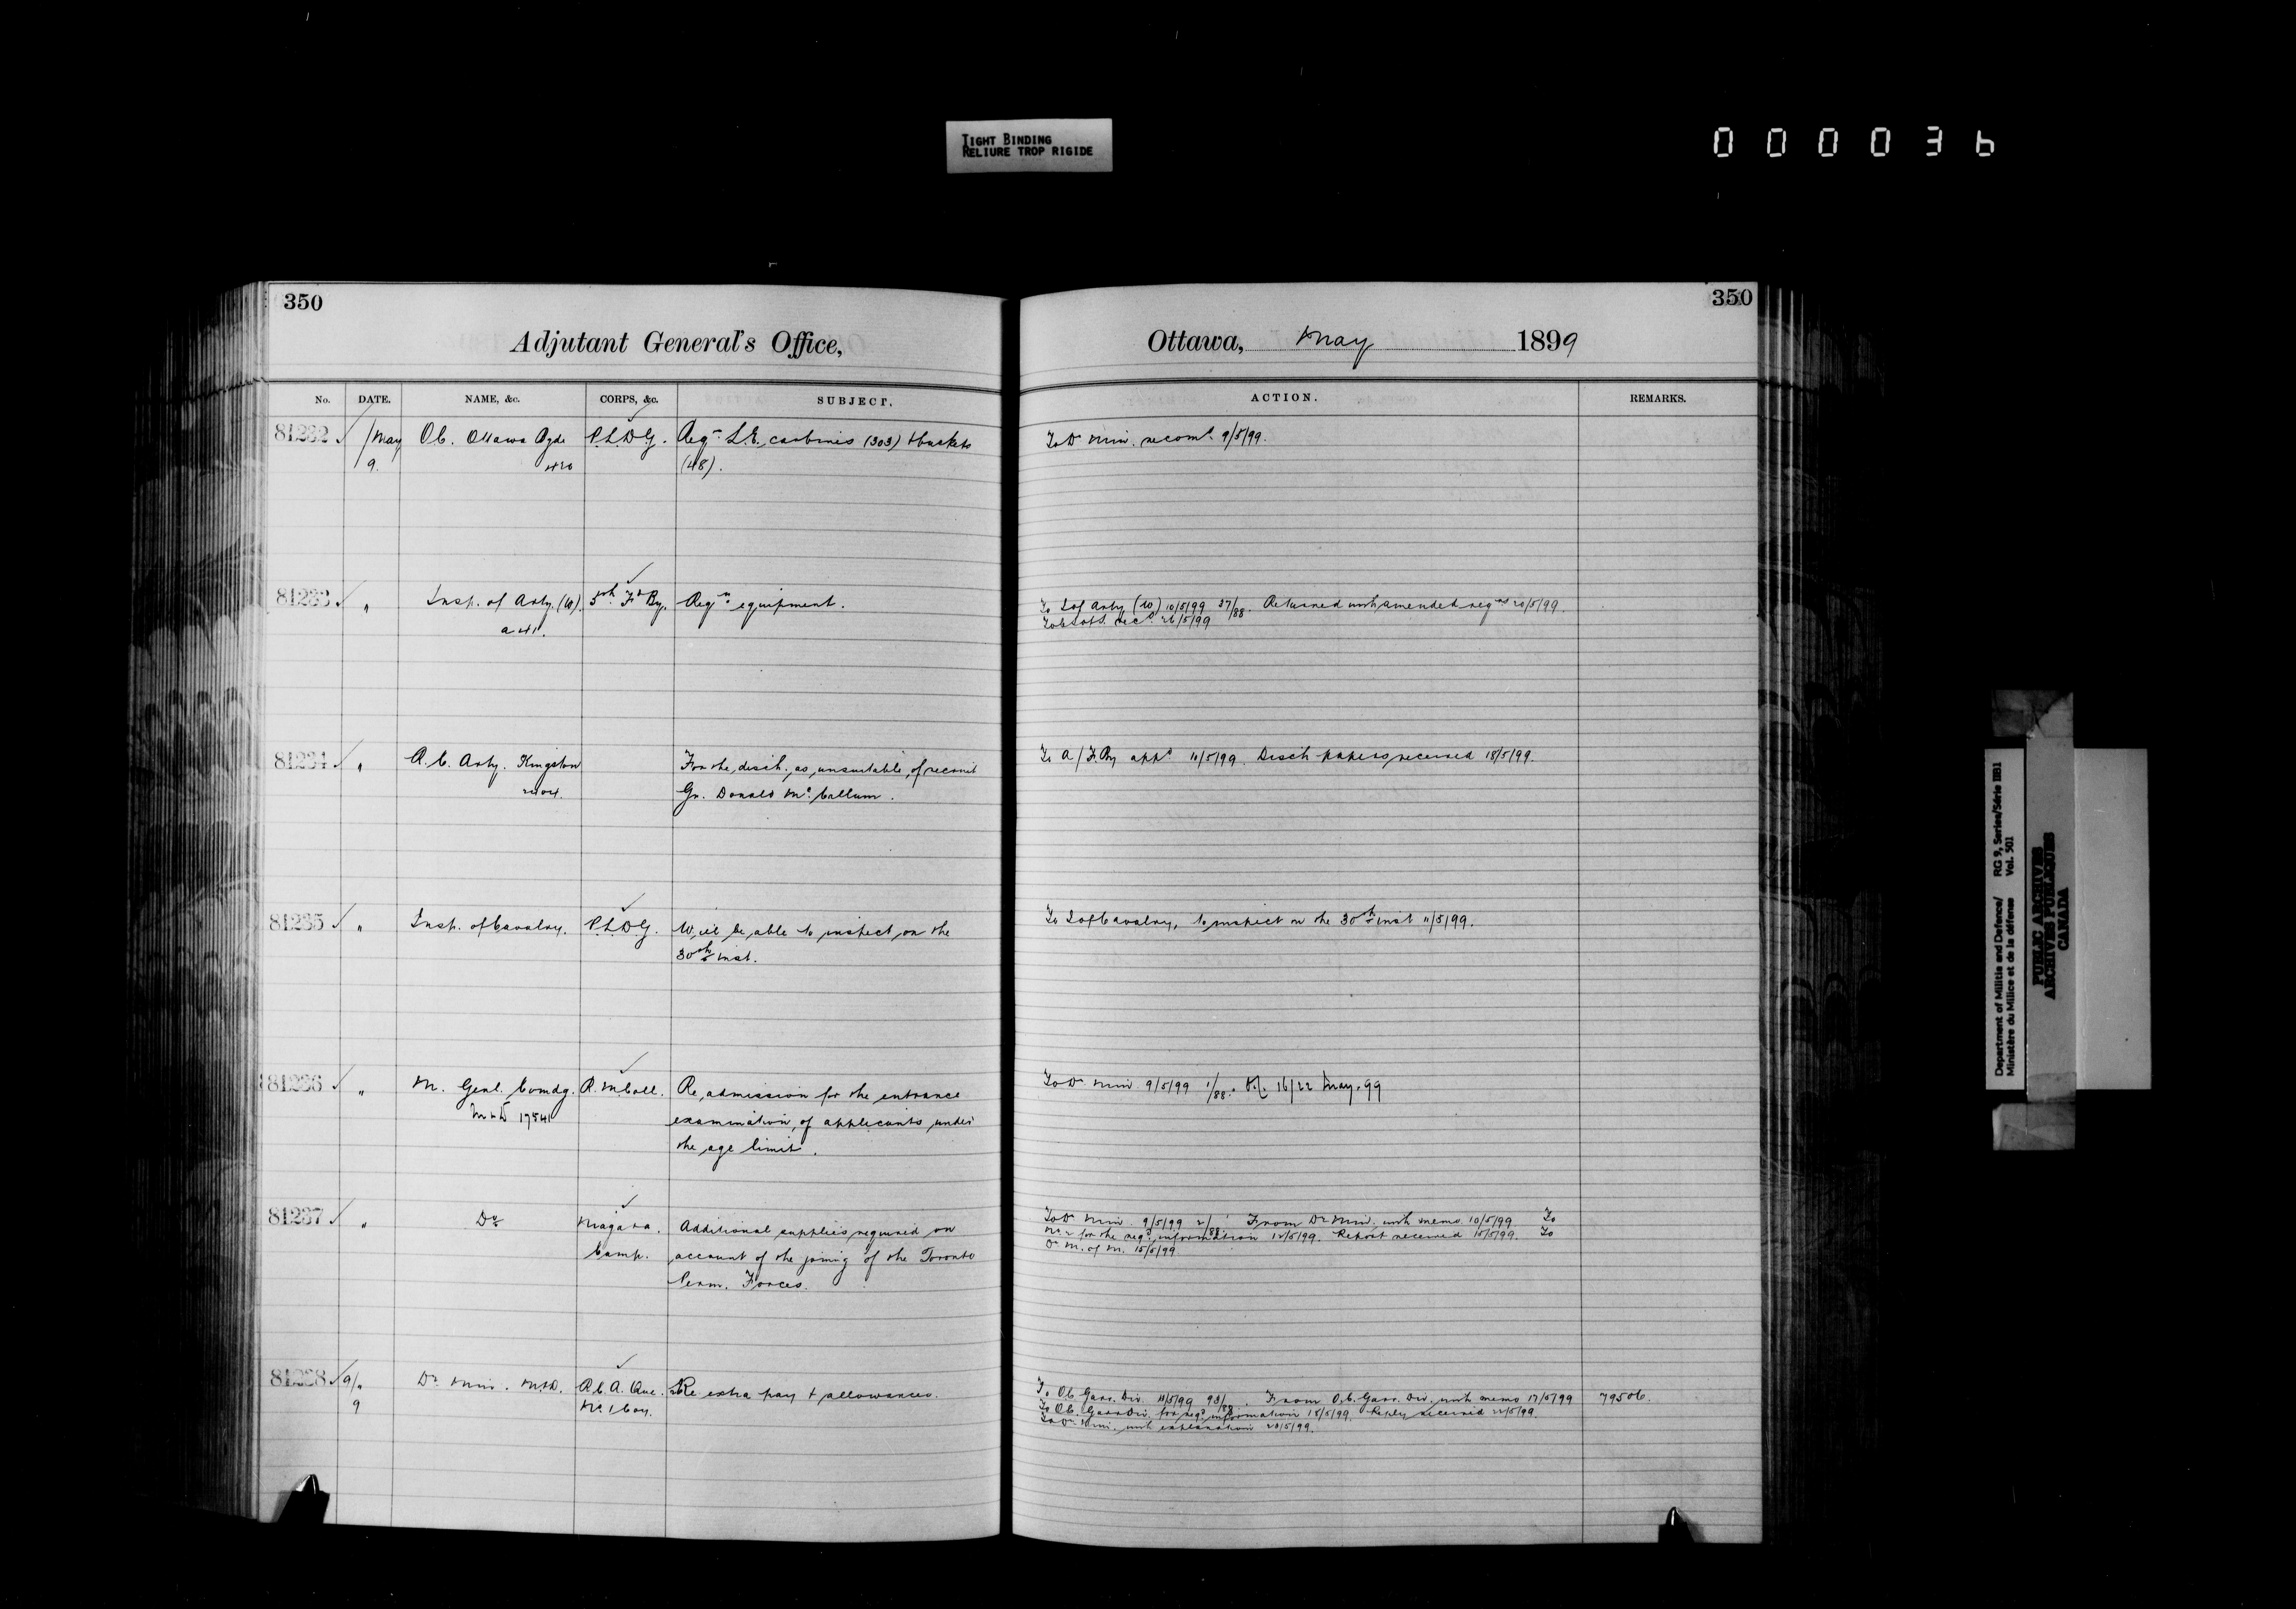 TIGHT BINDING
RELIURE TROP RIGIDE
000036
350
Adjutant General's Office,
No. DATE. NAME, &c. CORPS, &c. SUBJECT.
81232 May O.C. Ottawa Bgde P.L.D.G. Reqn L.E. carbines (303) + buckets
9. (48).
81233 " Insp. of Arty. (W) 5th Fd By. Reqn equipment.
a 41.
81234 " R.C. Arty. Kingston For the disch. as unsuitable, of recruit
Gr. Donald McCallum.
81235 " Insp. of Cavalry. P.L.D.G. Will be able to inspect on the
30th inst.
81236 " M. Genl. Comdg. R.M. Coll. Re admission for the entrance
M & D 17541 examination, of applicants under
the age limit.
81237 " Do Niagara Additional supplies required on
Camp. account of the joining of the Toronto
Perm. Forces.
81238 9/" Dr. Min. M&D. R.C.A. Que. Re extra pay + allowances.
9 No. 1 Coy.
350
Ottawa, May 1899
ACTION. REMARKS.
To Dr Min. recomd. 9/5/99.
To I of Arty (W) 10/5/99 37/88. Returned with amended reqns 20/5/99.
26/5/99
To A/F. By appd. 11/5/99. Disch papers received 18/5/99.
To I of Cavalry, to inspect on the 30th inst 11/5/99.
To Dr Min 9/5/99 1/88. 16/22 May. 99
To Dr Min 9/5/99 2/88. From Dr Min, with memo 10/5/99 To
No 2 for the reqd information 12/5/99. Report received 15/5/99. To
Dr M. of M. 15/5/99
To O.C. Garr. Div. 11/5/99 93/88. From O.C. Garr. Div. with memo 17/5/99 79506.
To O.C. Garr Div. for reqd information 18/5/99. Reply received 22/5/99.
To Dr Min. with explanation 20/5/99.
Department of Militia and Defence/ RG 9, Series/Série IIB1
Ministère du Milice et de la défense Vol. 501
PUBLIC ARCHIVES
ARCHIVES PUBLIQUES
CANADA